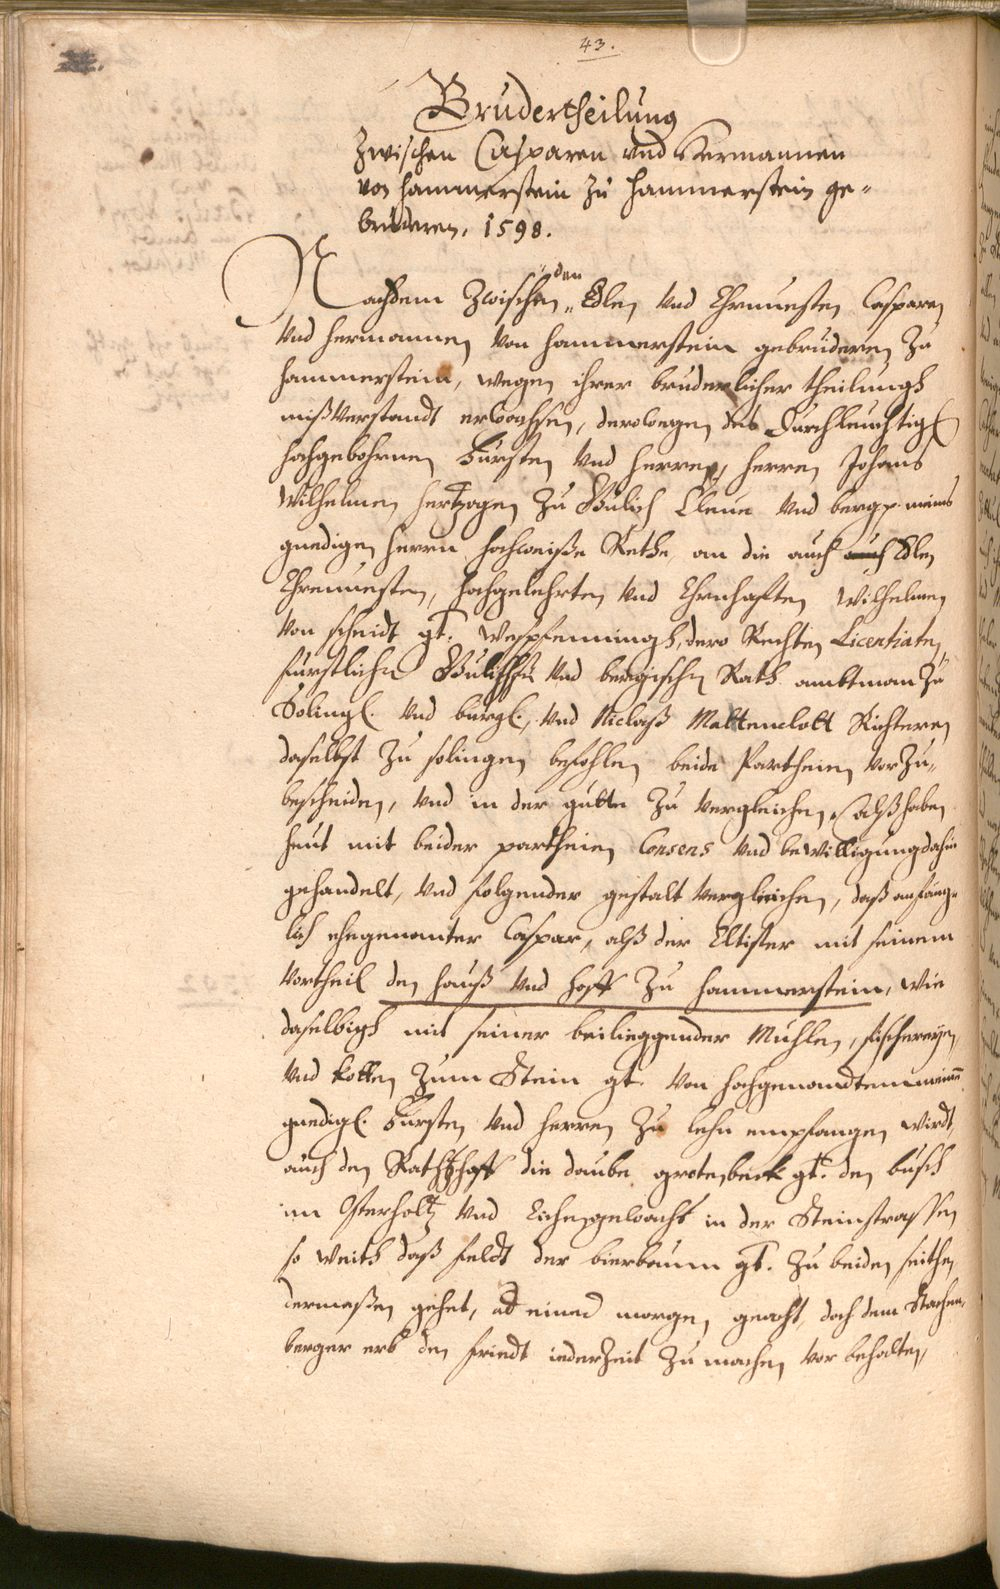 43.
Brudertheilung
Zwischen Casparen vnd Hermannen
von Hammerstein zu Hammerstein ge=
brüderen, 1598.
Nachdem Zwischen den Edlen vnd Ehrnuesten Casparen
vnd Hermannen von Hammerstein gebrüderen Zu
Hammerstein, wegen ihrer brüderlicher theilungh
mißverstandt erwachsen, derowegen des Durchleuchtigh
Hochgebohrnen Fürsten vnd Herren, Herren Johans
Wilhelmen Hertzogen Zu Gülich Cleue vnd berg p. meines
gnedigen Herrn hochweiße Rethe, an die auch Edlen
Ehrnuesten, Hochgelehrten vnd Ehrnhafften Wilhelmen
von Scheidt gt. Weschpfenningh, dero Rechten Licentiaten,
fürstlichen vnd bergischen Rath ambtman Zu
Solingh. vnd burgh., vnd Niclaß Mattenclott Richteren
daselbst Zu Solingen befohlen beide Partheien vor Zu=
bescheiden, vnd in der gütte Zu vergleichen, alß haben
heut mit beider partheien Consens vnd bewilligung dahin
gehandelt, vnd folgender gestalt vergleichen, daß anfäng=
lich ehegenanter Caspar, alß der Eltister mit seinem
Vortheil den Hauß vnd Hoff Zu Hammerstein, wie
daselbigh mit seiner beiliggender Mühlen, fischereyen
vnd Kotten Zum Stein gt. von hochgenandtem meinem
gnedigh. Fürsten vnd Herren Zu lehn empfangen wirdt,
auch den die daube grotenbeck gt. den busch
im Osterholtz vnd Eichengewachs in der Steinstrassen
so weith daß feldt der bierbaum gt. Zu beiden seithen
dermaßen gehet, ad einen morgen geacht, doch dem Stachen=
berger erb den friedt iederZeit Zu machen vor behalten,